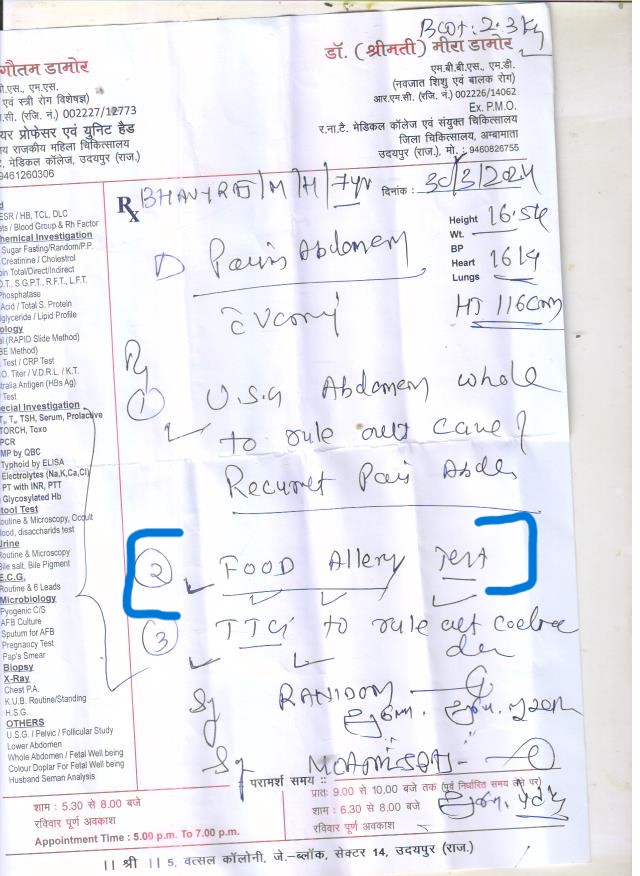 BWt: 2.3 kg
गौतम डामोर
डॉ. (श्रीमती) मीरा डामोर
बी.एस., एम.एस.
एवं स्त्री रोग विशेषज्ञ)
.सी. (रजि. नं.) 002227/12773
यर प्रोफेसर एवं युनिट हैड
य राजकीय महिला चिकित्सालय
. मेडिकल कॉलेज, उदयपुर (राज.)
9461260306
एम.बी.बी.एस., एम.डी.
(नवजात शिशु एवं बालक रोग)
आर.एम.सी. (रजि. नं.) 002226/14062
Ex. P.M.O.
र.ना.टै. मेडिकल कॉलेज एवं संयुक्त चिकित्सालय
जिला चिकित्सालय, अम्बामाता
उदयपुर (राज.), मो. : 9460826755
Rx BHAVYRAJ/M/H/7yr दिनांक : 30/3/2024
Height 16.54
Wt.
BP
Heart 16 kg
Lungs
HT 116 cm
Pain Abdomen
c̄ Vomy
Rx
① U.S.G Abdomen whole
to rule out cause of
Recurret Pain Abde
② FOOD Allery Test
③ TTG to rule out coeliac
Sy RANIDOM
Sy
ESR / HB, TCL, DLC
ts / Blood Group & Rh Factor
hemical Investigation
Sugar Fasting/Random/P.P.
Creatinine / Cholestrol
oin Total/Direct/Indirect
O.T., S.G.P.T., R.F.T., L.F.T.
Phosphatase
Acid / Total S. Protein
lglyceride / Lipid Profile
ology
al (RAPID Slide Method)
BE Method)
Test / CRP Test
.O. Titer / V.D.R.L. / K.T.
tralia Antigen (HBs Ag)
Test
ecial Investigation
T₃, T₄, TSH, Serum, Prolactive
TORCH, Toxo
PCR
MP by QBC
Typhoid by ELISA
Electrolytes (Na,K,Ca,Cl)
PT with INR, PTT
Glycosylated Hb
tool Test
outine & Microscopy, Occult
lood, disaccharids test
Urine
Routine & Microscopy
Bile salt, Bile Pigment
E.C.G.
Routine & 6 Leads
Microbiology
Pyogenic C/S
AFB Culture
Sputum for AFB
Pregnancy Test
Pap's Smear
Biopsy
X-Ray
Chest P.A.
K.U.B. Routine/Standing
H.S.G.
OTHERS
U.S.G. / Pelvic / Follicular Study
Lower Abdomen
Whole Abdomen / Fetal Well being
Colour Doplar For Fetal Well being
Husband Seman Analysis
परामर्श समय ::
शाम : 5.30 से 8.00 बजे
रविवार पूर्ण अवकाश
Appointment Time : 5.00 p.m. To 7.00 p.m.
प्रातः 9.00 से 10.00 बजे तक (पूर्व निर्धारित समय लेने पर)
शाम : 6.30 से 8.00 बजे
रविवार पूर्ण अवकाश
।। श्री ।। 5, वत्सल कॉलोनी, जे.-ब्लॉक, सेक्टर 14, उदयपुर (राज.)